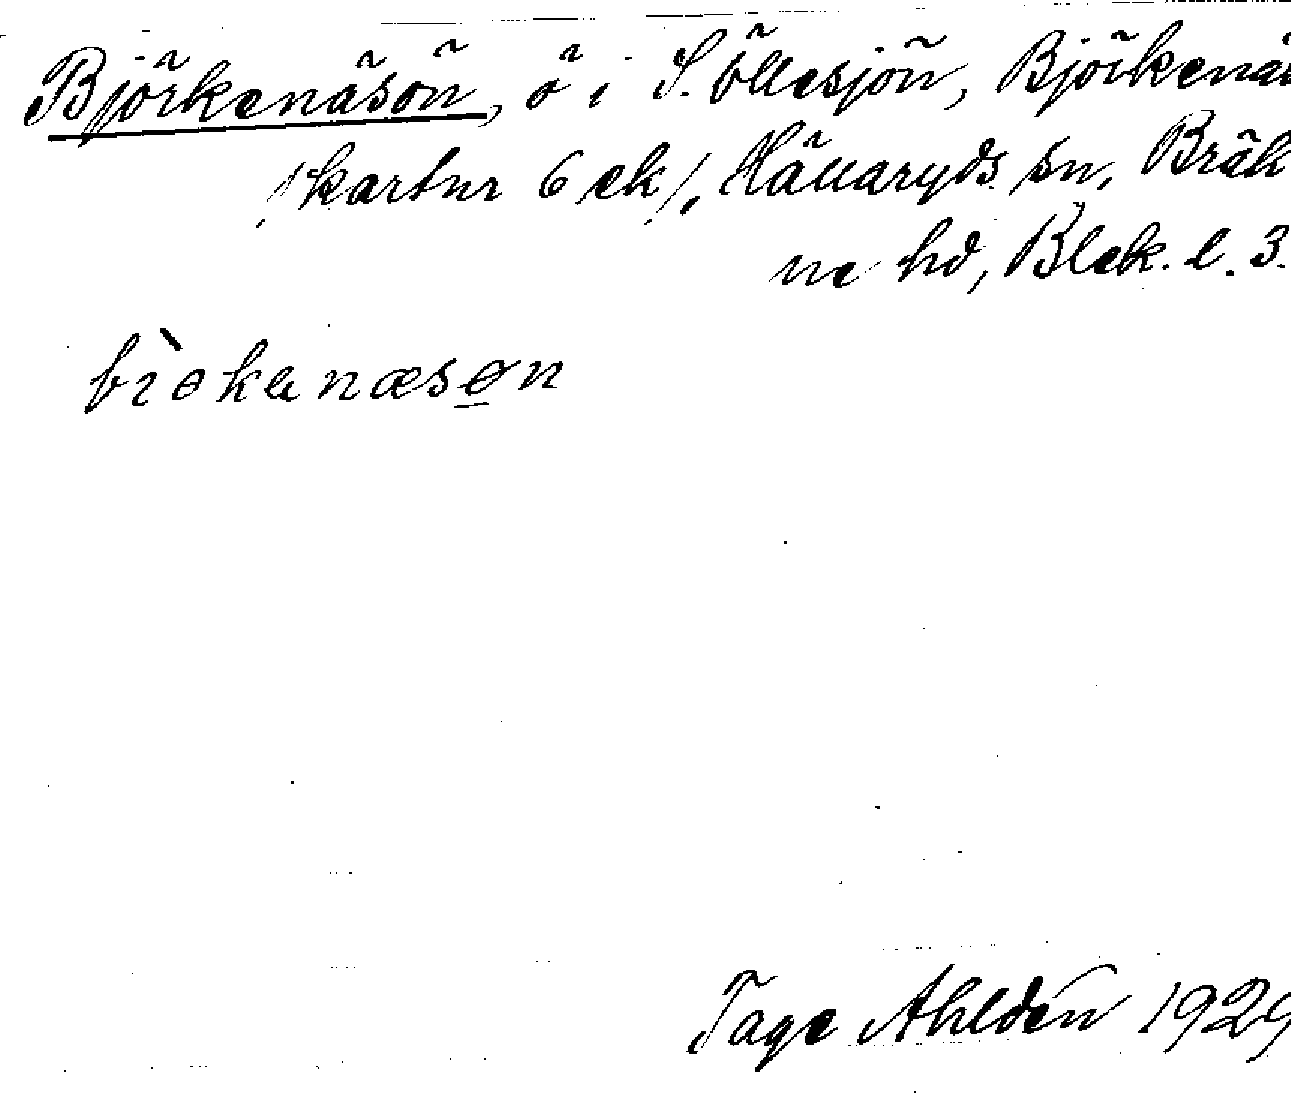 Björkenäsön, ö i S. Öllesjön, Björkenäs
/kartnr 6 ek/, Hällaryds sn, Bräk
ne hd, Blek. l. 3.
bìɵkanæsɵn
Tage Ahldén 1929